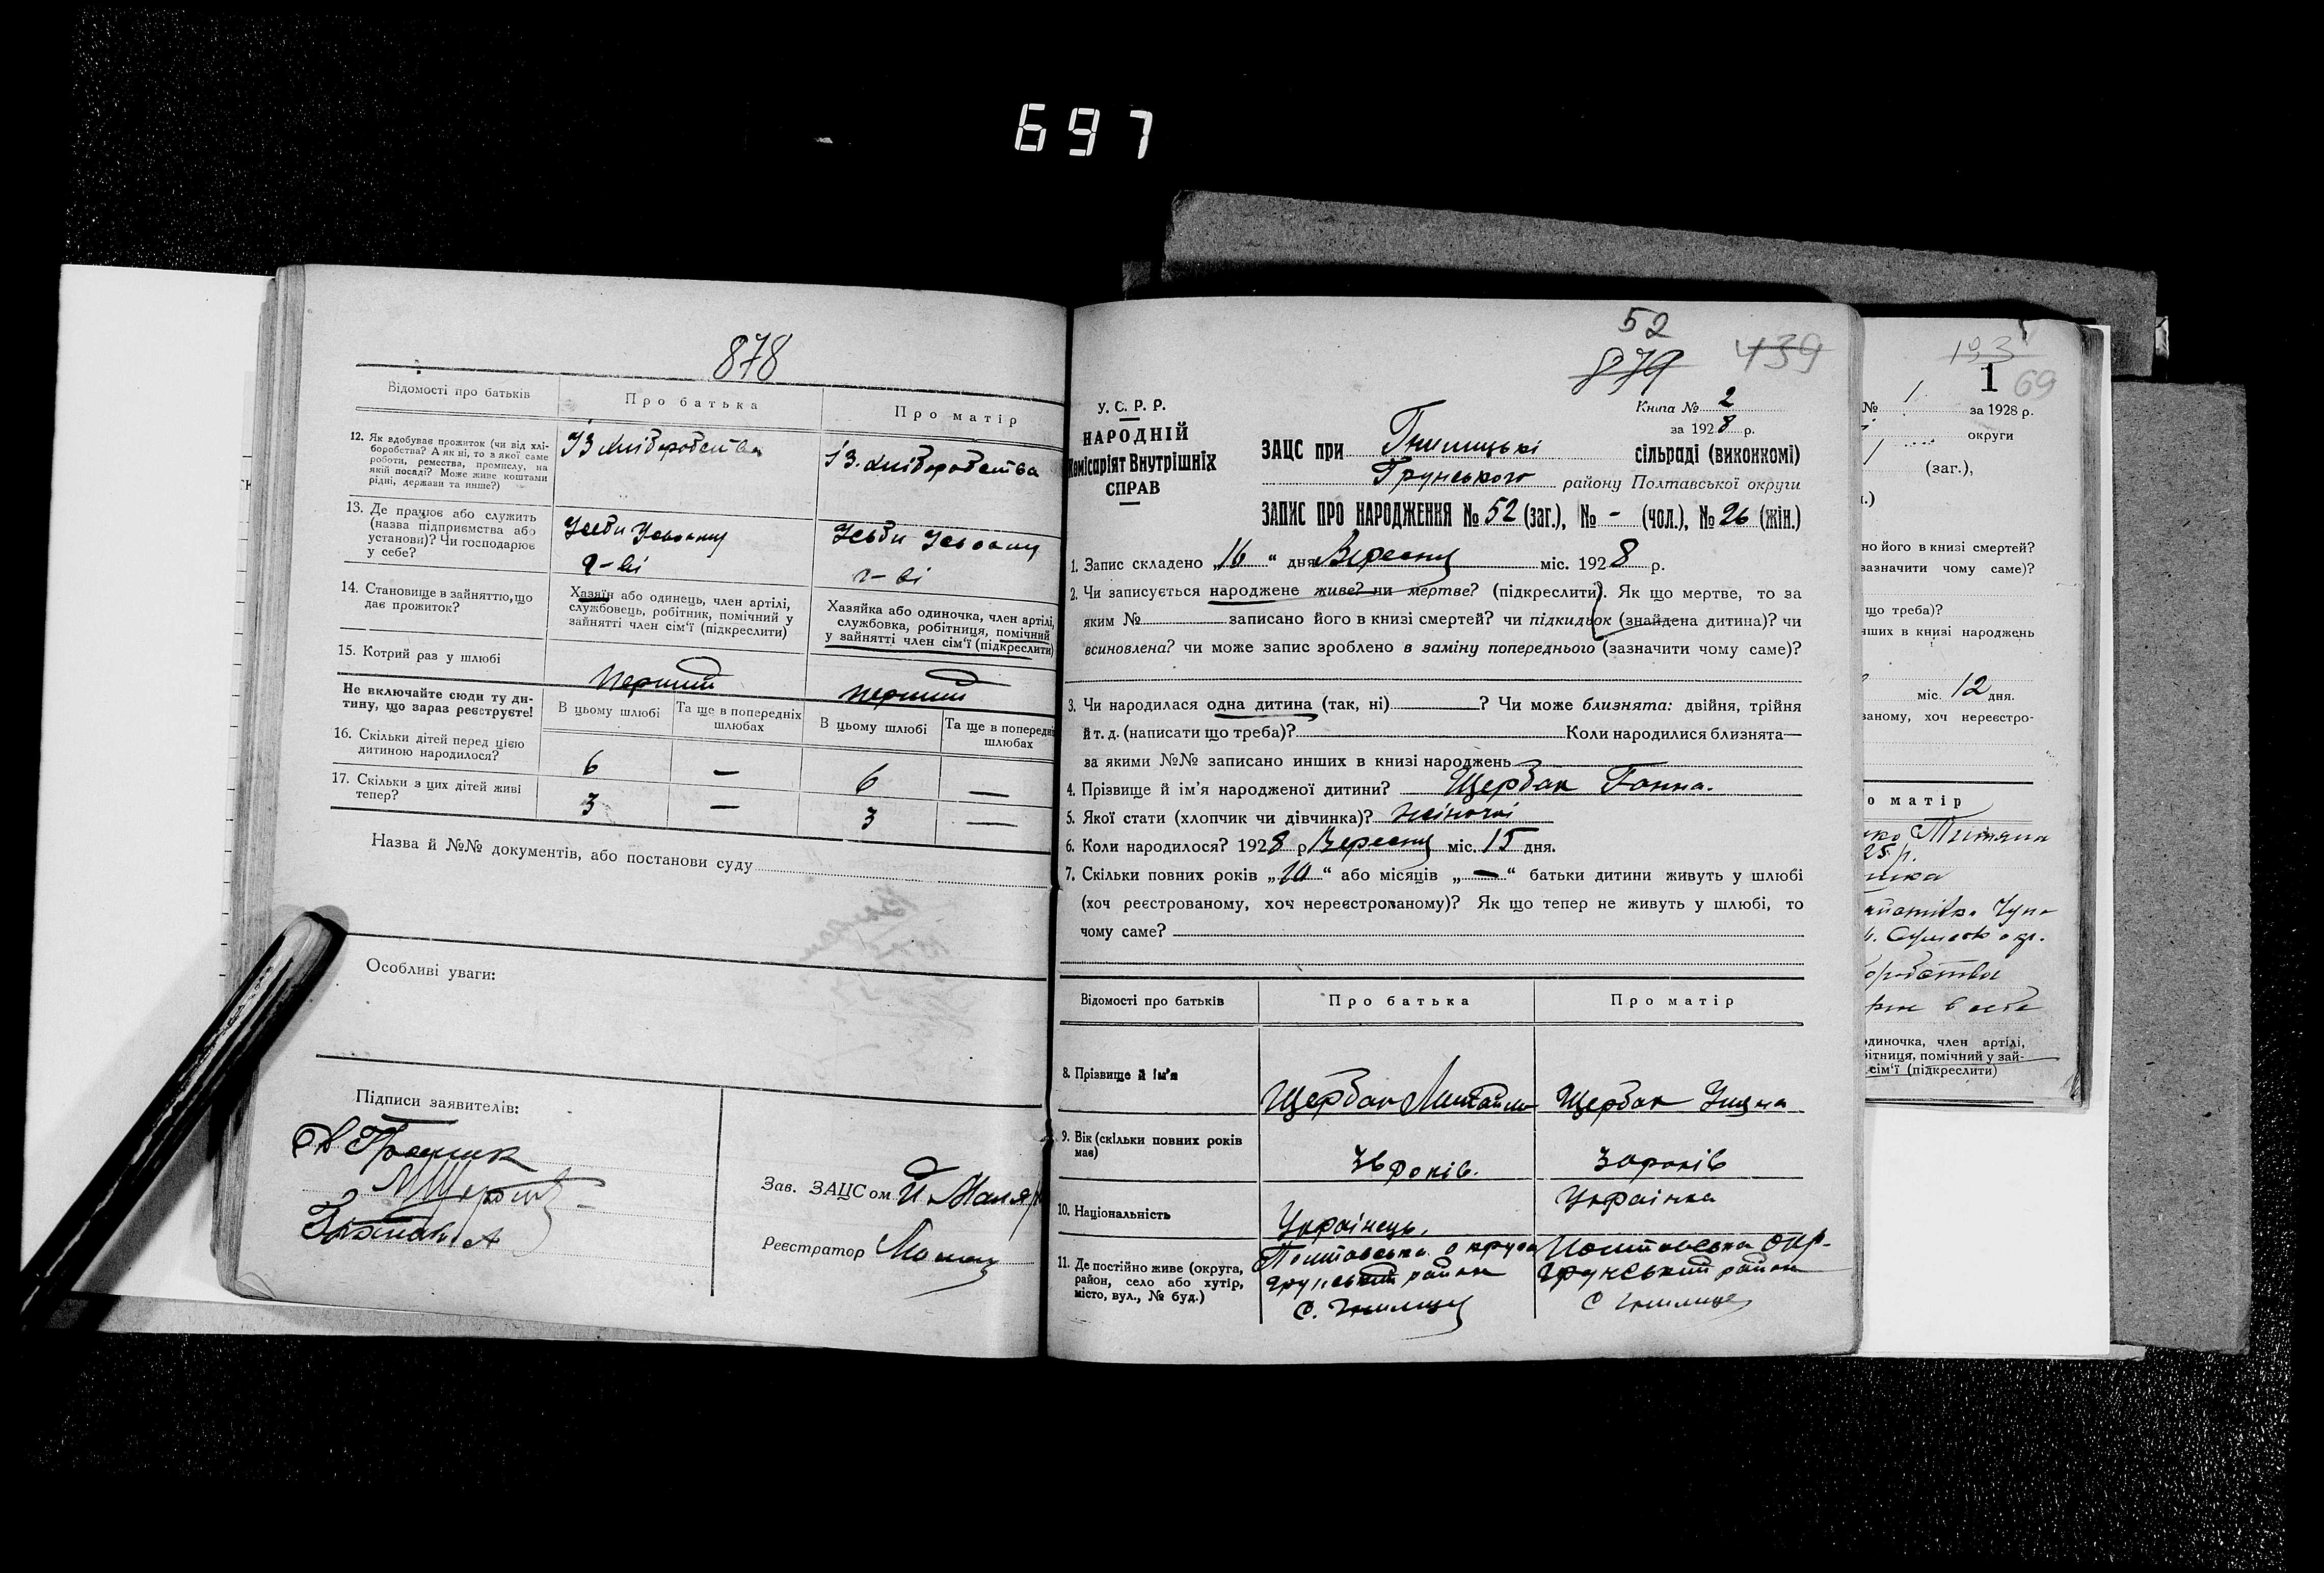 697
878
Відомості про батьків
Про батька
Про матір
12. Як вдобуває прожиток (чи від хлі-
боробства? А як ні, то з якої саме
роботи, ремества, промислу, на
якій посаді? Може живе коштами
рідні, держави та инше?)
Із хліборобства
Із хліборобства
13. Де працює або служить
(назва підприємства або
установи)? Чи господарює
у себе?
14. Становище в зайняттю, що
дає прожиток?
Хазяїн або одинець, член артілі,
службовець, робітник, помічний у
зайнятті член сім'ї (підкреслити)
Хазяйка або одиночка, член артілі,
службовка, робітниця, помічний
у зайнятті член сім'ї (підкреслити)
15. Котрий раз у шлюбі
перший
перший
Не включайте сюди ту ди-
тину, що зараз реєструєте!
В цьому шлюбі
Та ще в попередніх
шлюбах
В цьому шлюбі
Та ще в попередн
шлюбах
16. Скільки дітей перед цією
дитиною народилося?
6 — 6 —
17. Скільки з цих дітей живі
тепер?
3 — 3 —
Назва й №№ документів, або постанови суду
Особливі уваги:
Підписи заявителів:
Зав. ЗАЦСом
Реєстратор
52
879 439
У. С. Р. Р.
НАРОДНІЙ
Комісаріят Внутрішніх
СПРАВ
Книга № 2
за 1928 р.
ЗАЦС при сільраді (виконкомі)
Грунського району Полтавської округи
ЗАПИС ПРО НАРОДЖЕННЯ № 52 (заг.), № - (чол.), № 26 (жін.)
1. Запис складено „16" дня Вересня міс. 1928 р.
2. Чи записується народжене живе? чи мертве? (підкреслити). Як що мертве, то за
яким № записано його в книзі смертей? чи підкидьок (знайдена дитина)? чи
всиновлена? чи може запис зроблено в заміну попереднього (зазначити чому саме)?
3. Чи народилася одна дитина (так, ні) ? Чи може близнята: двійня, трійня
й т. д. (написати що треба)? Коли народилися близнята—
за якими №№ записано инших в книзі народжень
4. Прізвище й ім'я народженої дитини? Щербак Ганна.
5. Якої стати (хлопчик чи дівчинка)? жіночої
6. Коли народилося? 1928 р. Вересня міс. 15 дня.
7. Скільки повних років „10" або місяців „—" батьки дитини живуть у шлюбі
(хоч реєстрованому, хоч нереєстрованому)? Як що тепер не живуть у шлюбі, то
чому саме?
Відомості про батьків
Про батька
Про матір
8. Прізвище й ім'я
Щербак Михайло
Щербак
9. Вік (скільки повних років
має)
36 років.
30 років
10. Національність
Українець.
Українка
11. Де постійно живе (округа,
район, село або хутір,
місто, вул., № буд.)
Полтавська округа
Грунський район
с. Гнилиця
Полтавська окр.
Грунський район
с Гнилиця
193
1 69
№ 1 за 1928 р.
округи
(заг.),
но його в книзі смертей?
зазначити чому саме)?
що треба)?
нших в книзі народжень
міс. 12 дня.
ваному, хоч нереєстро-
о матір
25 р.
одиночка, член артілі,
бітниця, помічний у зай-
сім'ї (підкреслити)